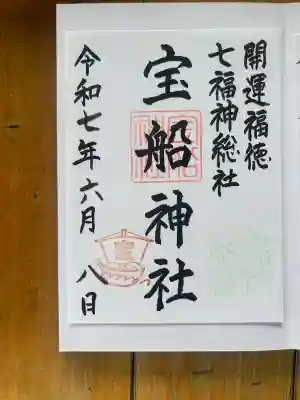 開運福徳
七福神総社
宝船神社
令和七年六月八日